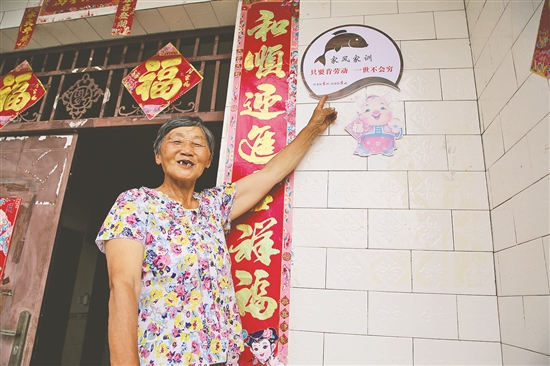 家风家训
只要肯劳动 一世不会穷
和順迎進
祥福
福
福